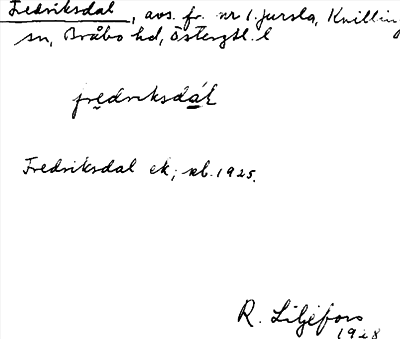 Fredriksdal, avs. fr. nr 1 Jursla, Kvilling
sn, Bråbo hd, Östergtl. l
fredriksdál
Fredriksdal ek; rb. 1925.
R. Liljefors
1928